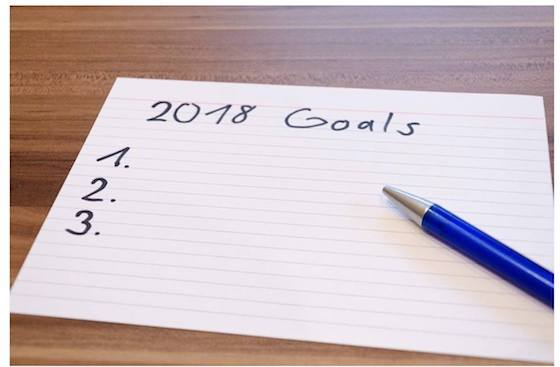 2018 Goals
1.
2.
3.